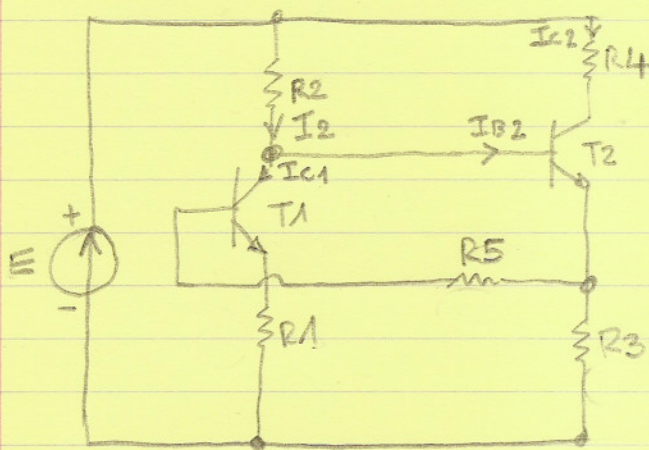 IC2
R4
R2
I2
IB2
T2
IC1
T1
+
E
-
R5
R1
R3